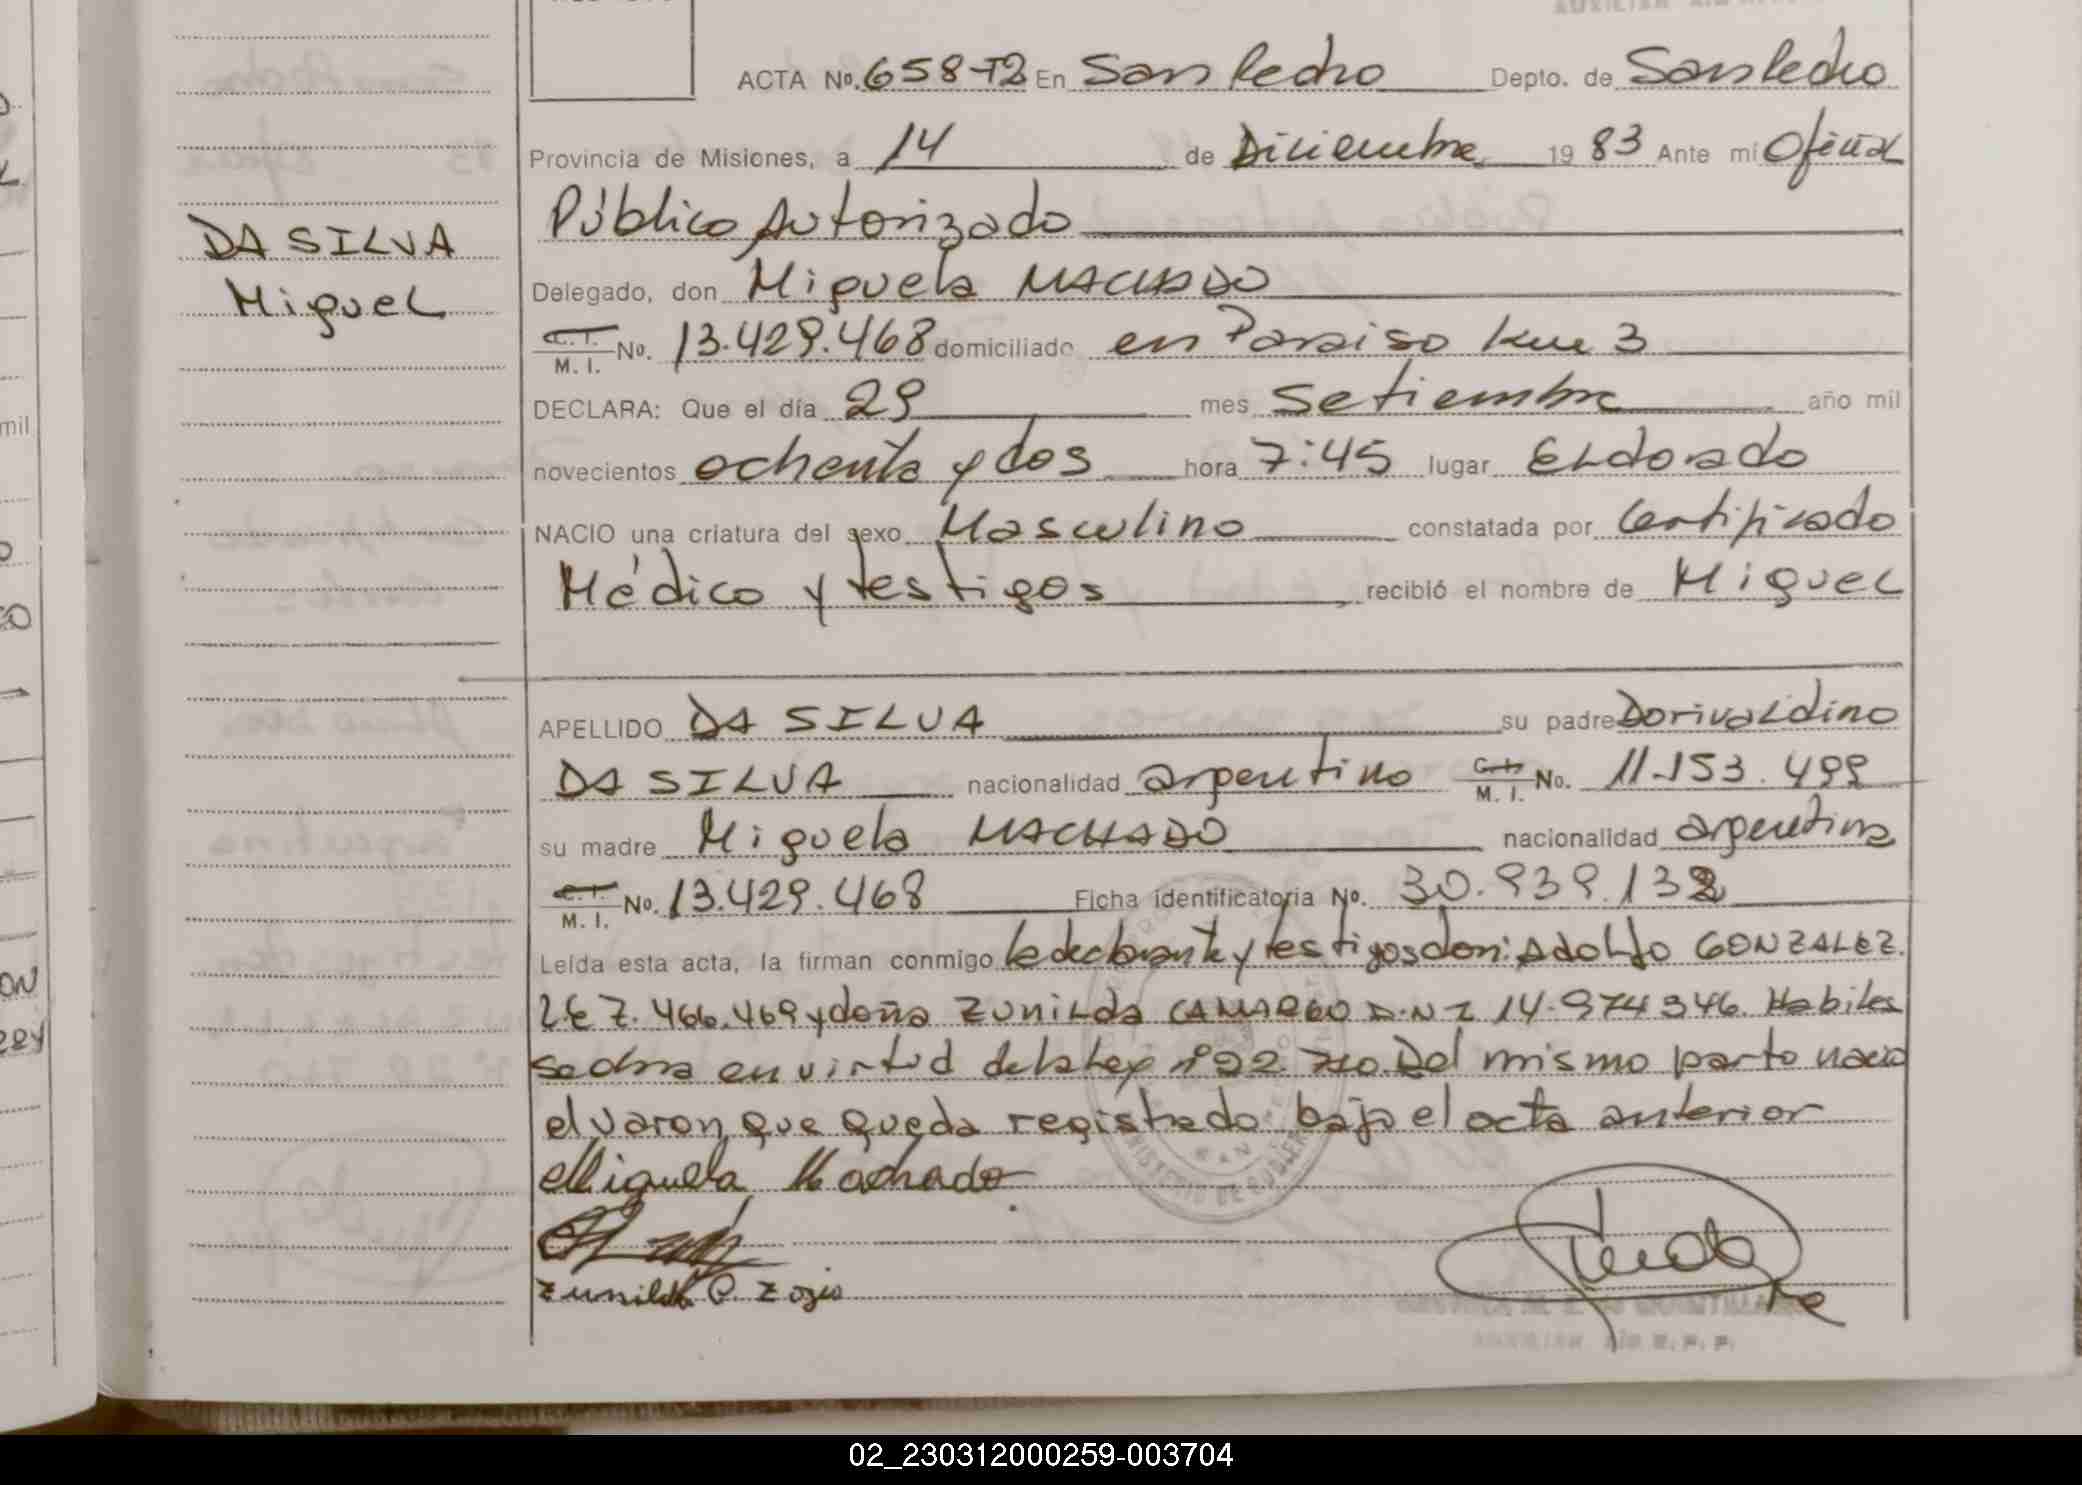 ACTA No. 658-T2 En San Pedro Depto. de San Pedro
Provincia de Misiones, a 14 de Diciembre 1983 Ante mí Oficial
Público Autorizado
DA SILVA
Miguel
Delegado, don Miguela MACHADO
C.I. M. I. No. 13.429.468 domiciliado en Paraiso km 3
DECLARA: Que el día 29 mes Setiembre año mil
novecientos ochenta y dos hora 7:45 lugar Eldorado
NACIO una criatura del sexo Masculino constatada por Certificado
Médico y testigos recibió el nombre de Miguel
APELLIDO DA SILVA su padre Dorivaldino
DA SILVA nacionalidad argentino M. I. No. 11.153.499
su madre Miguela MACHADO nacionalidad argentina
C.I. M. I. No. 13.429.468 Ficha identificatoria No. 30.939.132
Leída esta acta, la firman conmigo la declarante y testigos don: Adolfo GONZALEZ.
L.E 7.466.469 y doña ZUNILDA CAMARGO D.N.I 14.974346. Habiles
se labra en virtud de la Ley nº 22.710. Del mismo parto nacio
el varon, que queda registrado bajo el acta anterior
Miguela Machado
Zunilda C.
AUXILIAR
02_230312000259-003704